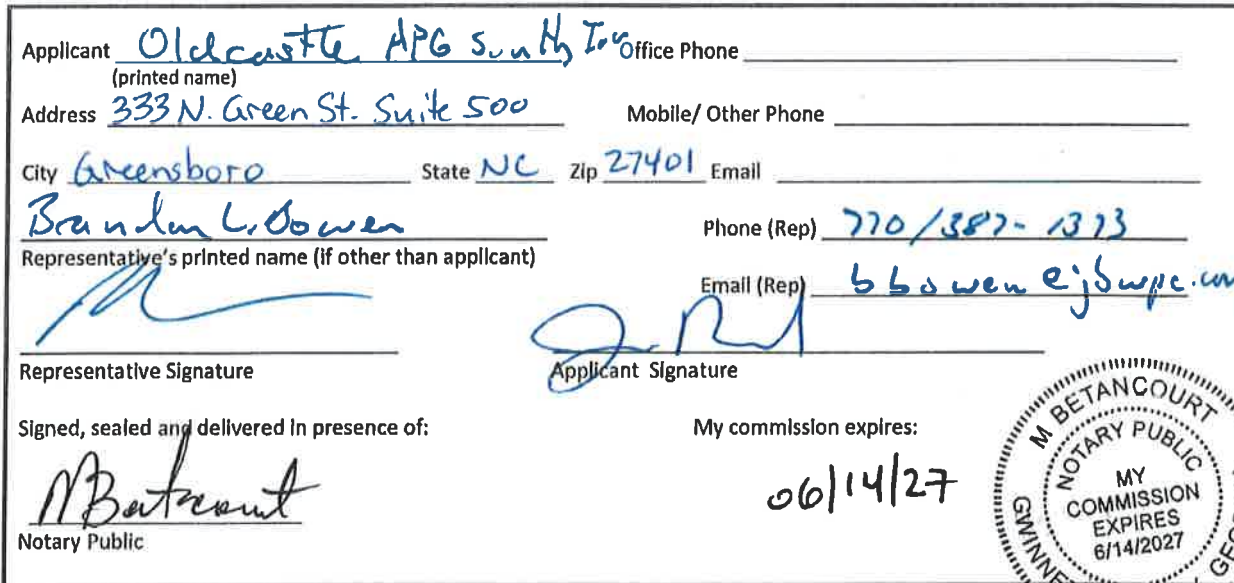 Applicant Oldcastle APG South, Inc Office Phone
(printed name)
Address 333 N. Green St. Suite 500 Mobile/ Other Phone
City Greensboro State NC Zip 27401 Email
Brandon L. Bowen Phone (Rep) 770/387-1373
Representative's printed name (if other than applicant)
Email (Rep) bbowen@jbwpc.com
Representative Signature Applicant Signature
Signed, sealed and delivered in presence of: My commission expires:
MBetancourt 06/14/27
Notary Public
M BETANCOURT
NOTARY PUBLIC
MY
COMMISSION
EXPIRES
6/14/2027
GWINNE
GEO